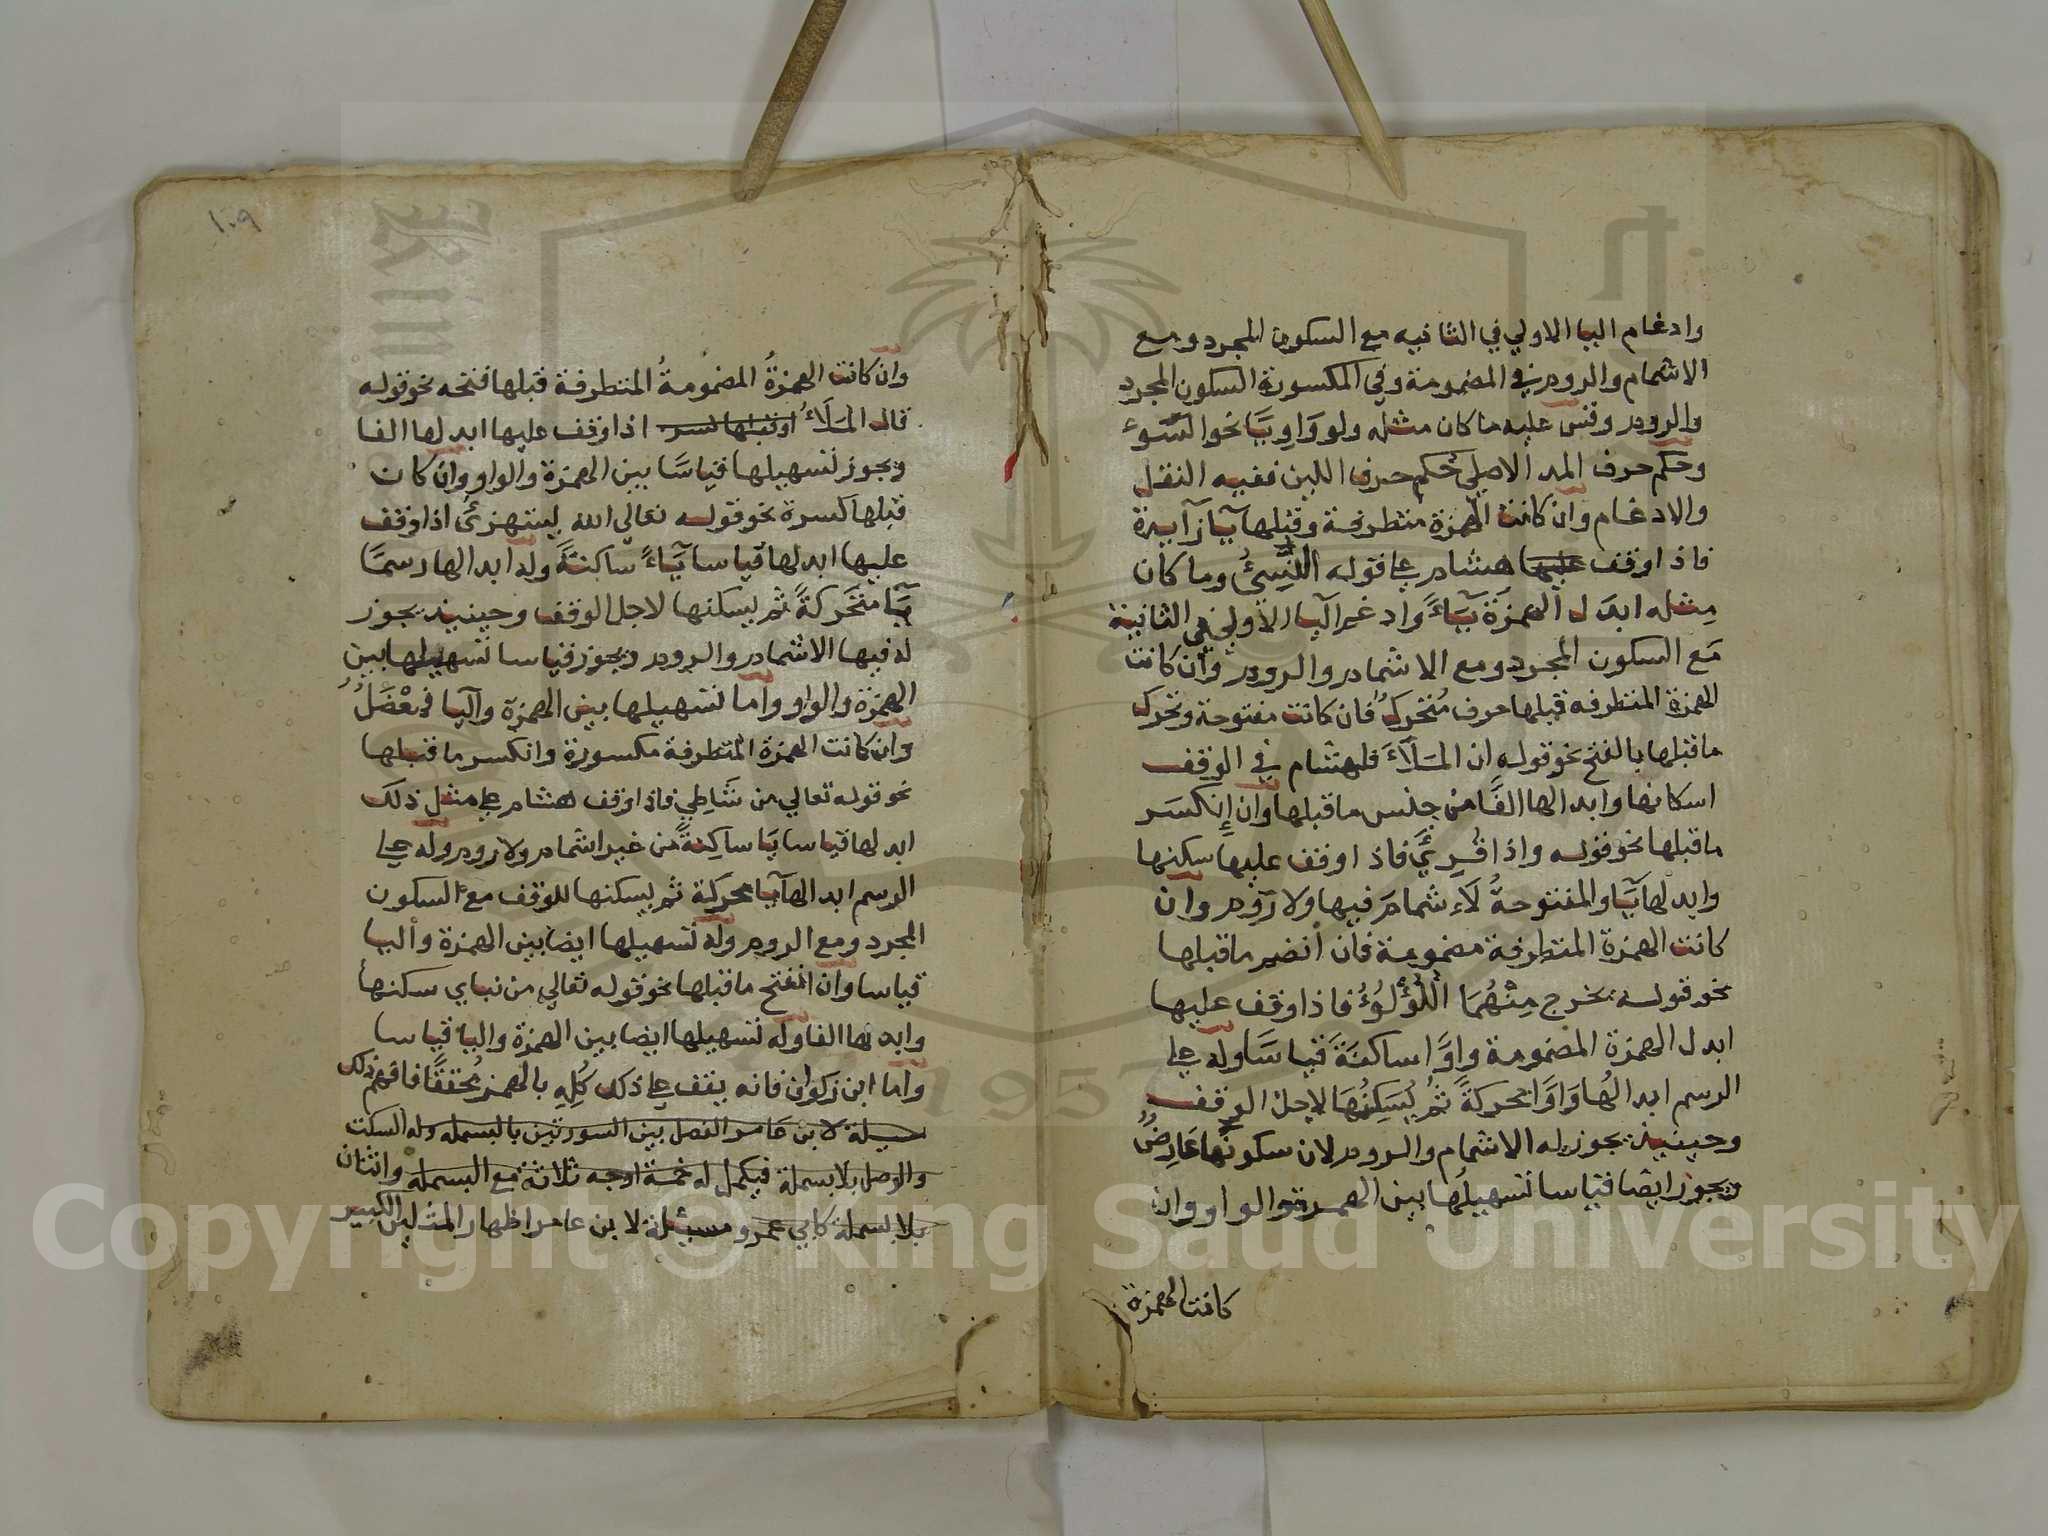 وادغام اليا الاولي في الثانيه مع السكون المجرد ومع
الاشمام والروم في المضمومة وفي المكسورة السكون المجرد
والروم وقس عليه ما كان مثله ولو وَاويًا نحو السَّوء
وحكم حرف المد الاصلي حُكم حرف اللين ففيه النقل
والادغام وان كانت الهمزة متطرفة وقبلها يَا زآيدة
فاذا وقف عليها هشام علي قوله النَّسِئُ وما كان
مِثله ابدَل الهمزَة يَاءً وادغم اليا الاولي في الثانية
مَع السكون المجرد ومع الاشمام والروم وان كانت
الهمزة المتطرفه قبلها حرف مُتحَركٌ فان كانت مفتوحة وتحرك
ما قبلها بالفتح نحو قوله ان المَلَأَ فلهشام في الوقف
اسكانها وابدالها الفًا من جنس ما قبلها وان اِنكسَر
ما قبلها نحو قوله واذا قُرِئَ فاذا وقف عليها سكنها
وابدلها يَا والمفتوحةُ لَاءشمامَ فيها ولا رَوم وان
كانت الهمزة المتطرفة مضمومة فان انضم ما قبلها
نحو قوله يخرج مِنْهُمَا اللُّؤْلُؤُ فاذا وقف عليها
ابدل الهمزة المضمومة واوًا ساكنَةً قياسًا وله علي
الرسم ابدالُها وَاوًا محركةً ثم يُسَكِنُهَا لاجل الوقف
وحينيذ يجوز له الاشمام والروم لان سكونها عَارِضٌ
ويجوز ايضا قياسا تسهيلُها بين الهمزة والواو وان
كانت الهمزة
١٠٩
وان كانت الهمزةُ المضمومةُ المتطرفة قبلها فتحه نحو قوله
قال المَلَأُ اوقبلها كسر اذا وقف عليها ابدلها الفا
ويجوز تسهيلها قياسًا بين الهمزة والواو وان كان
قبلها كسرة نحو قوله تعالي الله يستهزئُ اذا وقف
عليها ابدلها قياسا يَاءً ساكنَةً وله ابدالها رسمًا
يَا متحَركةً ثم يسكنها لاجل الوقف وحينيذ يجوز
له فيها الاشمام والروم ويجوز قياسا تسهيلها بين
الهمزة والواو واما تسهيلها بين الهمزة واليا فمُعْضَلٌ
وان كانت الهمزة المتطرفة مكسورة وانكسر ما قبلها
نحو قوله تعالي من شَاطِي فاذا وقف هشام علي مثل ذلك
ابدلها قياسا يَا ساكِنةً من غير اشمام ولا روم وله علي
الرسم ابدالها يا محركة ثم يسكنها للوقف مع السكون
المجرد ومع الروم وله تسهيلها ايضا بين الهمزة واليا
قياسا وان انفتح ما قبلها نحو قوله تعالي من نباي سكنها
وابدلها الفا وله تسهيلها ايضا بين الهمزة واليا قياسا
واما ابن ذكوان فانه يقف علي ذلك كُلِهِ بالهمز مُحققًا فافهم ذلك
مسيلة لابن عامر الفصل بين السورتين بالبسمله وله السكت
والوصل بلا بسملة فيكمل له خمسة اوجه ثلاثة مع البسمله واثنان
بلا بسملة كابي عمرو مسئلة لابن عامر اظهار المثلين الكبير
Copyright © King Saud University
1957